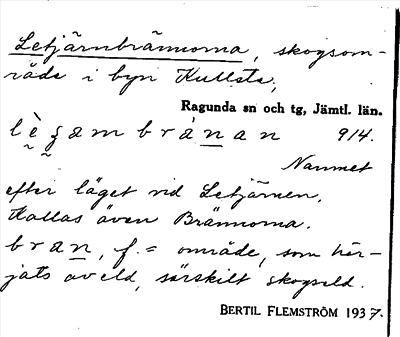 Letjärnbrännorna, skogsom-
råde i byn Kullsta;
Ragunda sn och tg, Jämtl. län.
914.
Namnet
efter läget vid Letjärnen.
Kallas även Brännorna.
bran, f. = område, som här-
jats av eld, särskilt skogseld.
BERTIL FLEMSTRÖM 1937.